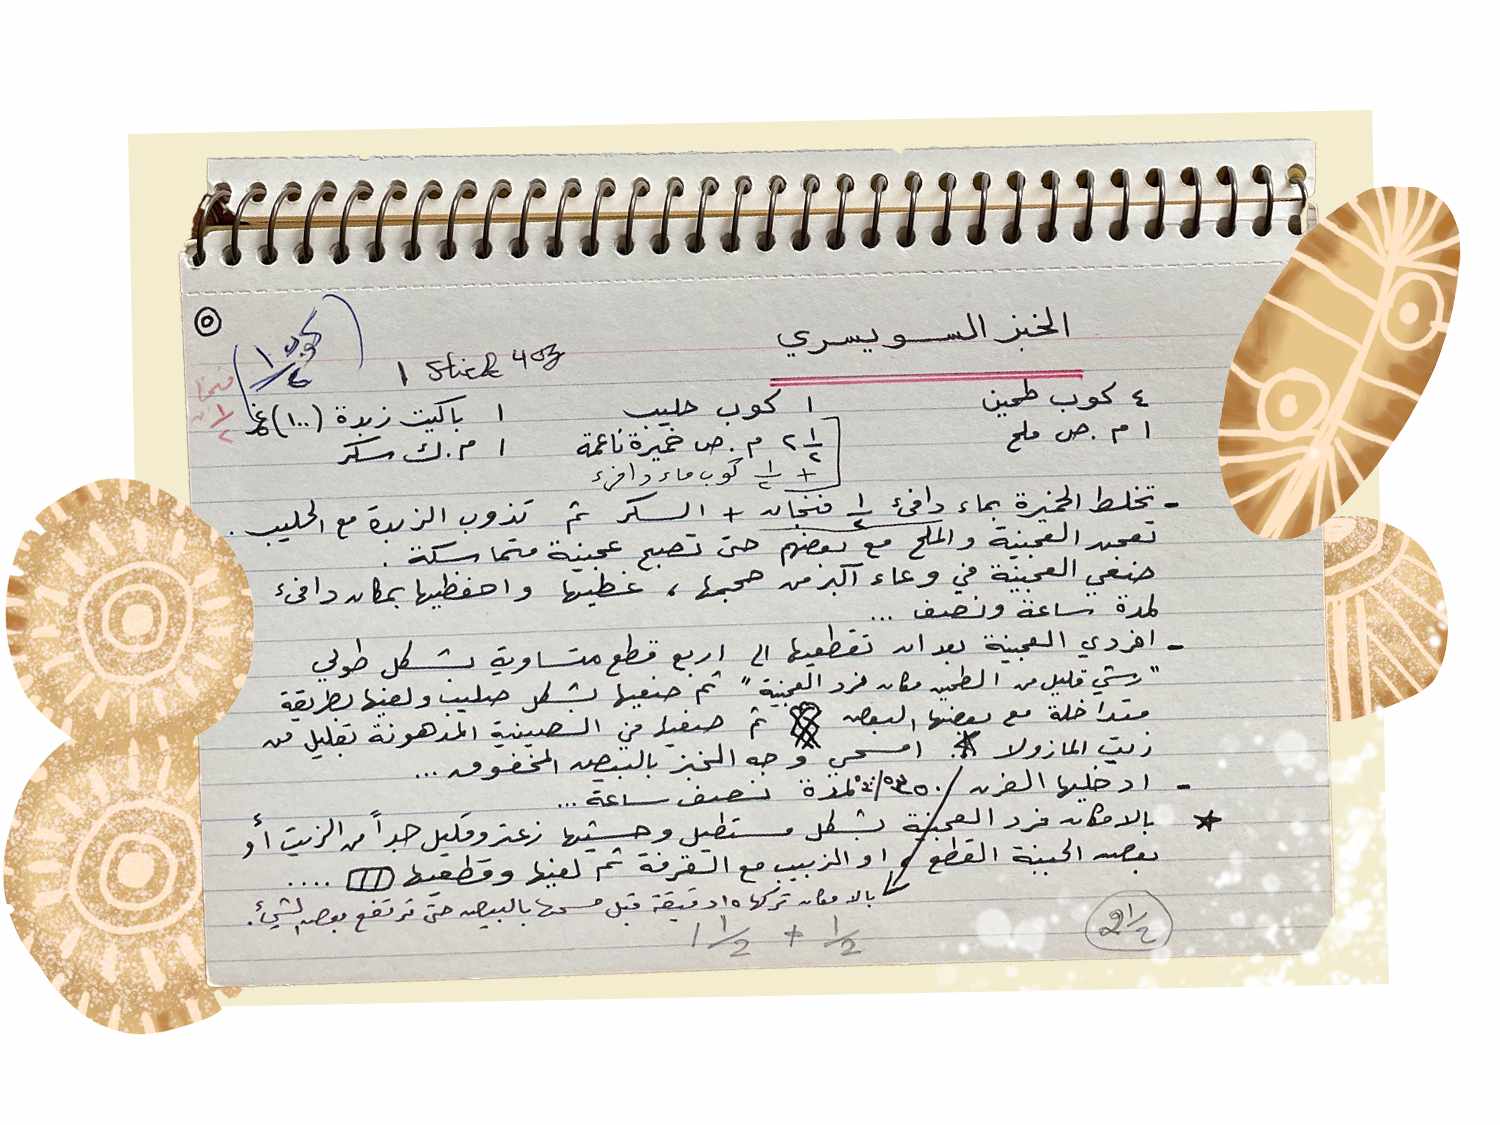 الخبز السويسري
٥
كوب ١/٢
1 Stick 4oz
٤ كوب طحين
١ كوب حليب
١ باكيت زبدة (١٠٠) غ
١ م.ص ملح
٢ ١/٢ م.ص خميرة ناعمة
١ م.ك سكر
+ ١/٢ كوب ماء دافئ
- تخلط الخميرة بماء دافئ ١/٢ فنجان + السكر ثم تذوب الزبدة مع الحليب.
تعجن العجينة والملح مع بعضهم حتى تصبح عجينة متماسكة.
ضعي العجينة في وعاء أكبر من حجمها، غطيها واحفظيها بمكان دافئ
لمدة ساعة ونصف ...
- افردي العجينة بعد ان تقطعيها الى اربع قطع متساوية بشكل طولي
"رشي قليل من الطحين مكان فرد العجينة" ثم ضعيها بشكل صليب ولفيها بطريقة
متداخلة مع بعضها البعض ثم ضعيها في الصينية المدهونة بقليل من
زيت المازولا. امسحي وجه الخبز بالبيض المخفوق ...
- ادخليها الفرن ٣٥٠ لمدة نصف ساعة ...
* بالامكان فرد العجينة بشكل مستطيل وحشيها زعتر وقليل جداً من الزيت أو
بعض الجبنة القطع، او الزبيب مع القرفة ثم لفيها وقطعيها ....
بالامكان تركها ١٥ دقيقة قبل مسحها بالبيض حتى ترتفع بعض الشيء.
1 1/2 + 1/2
2 1/2